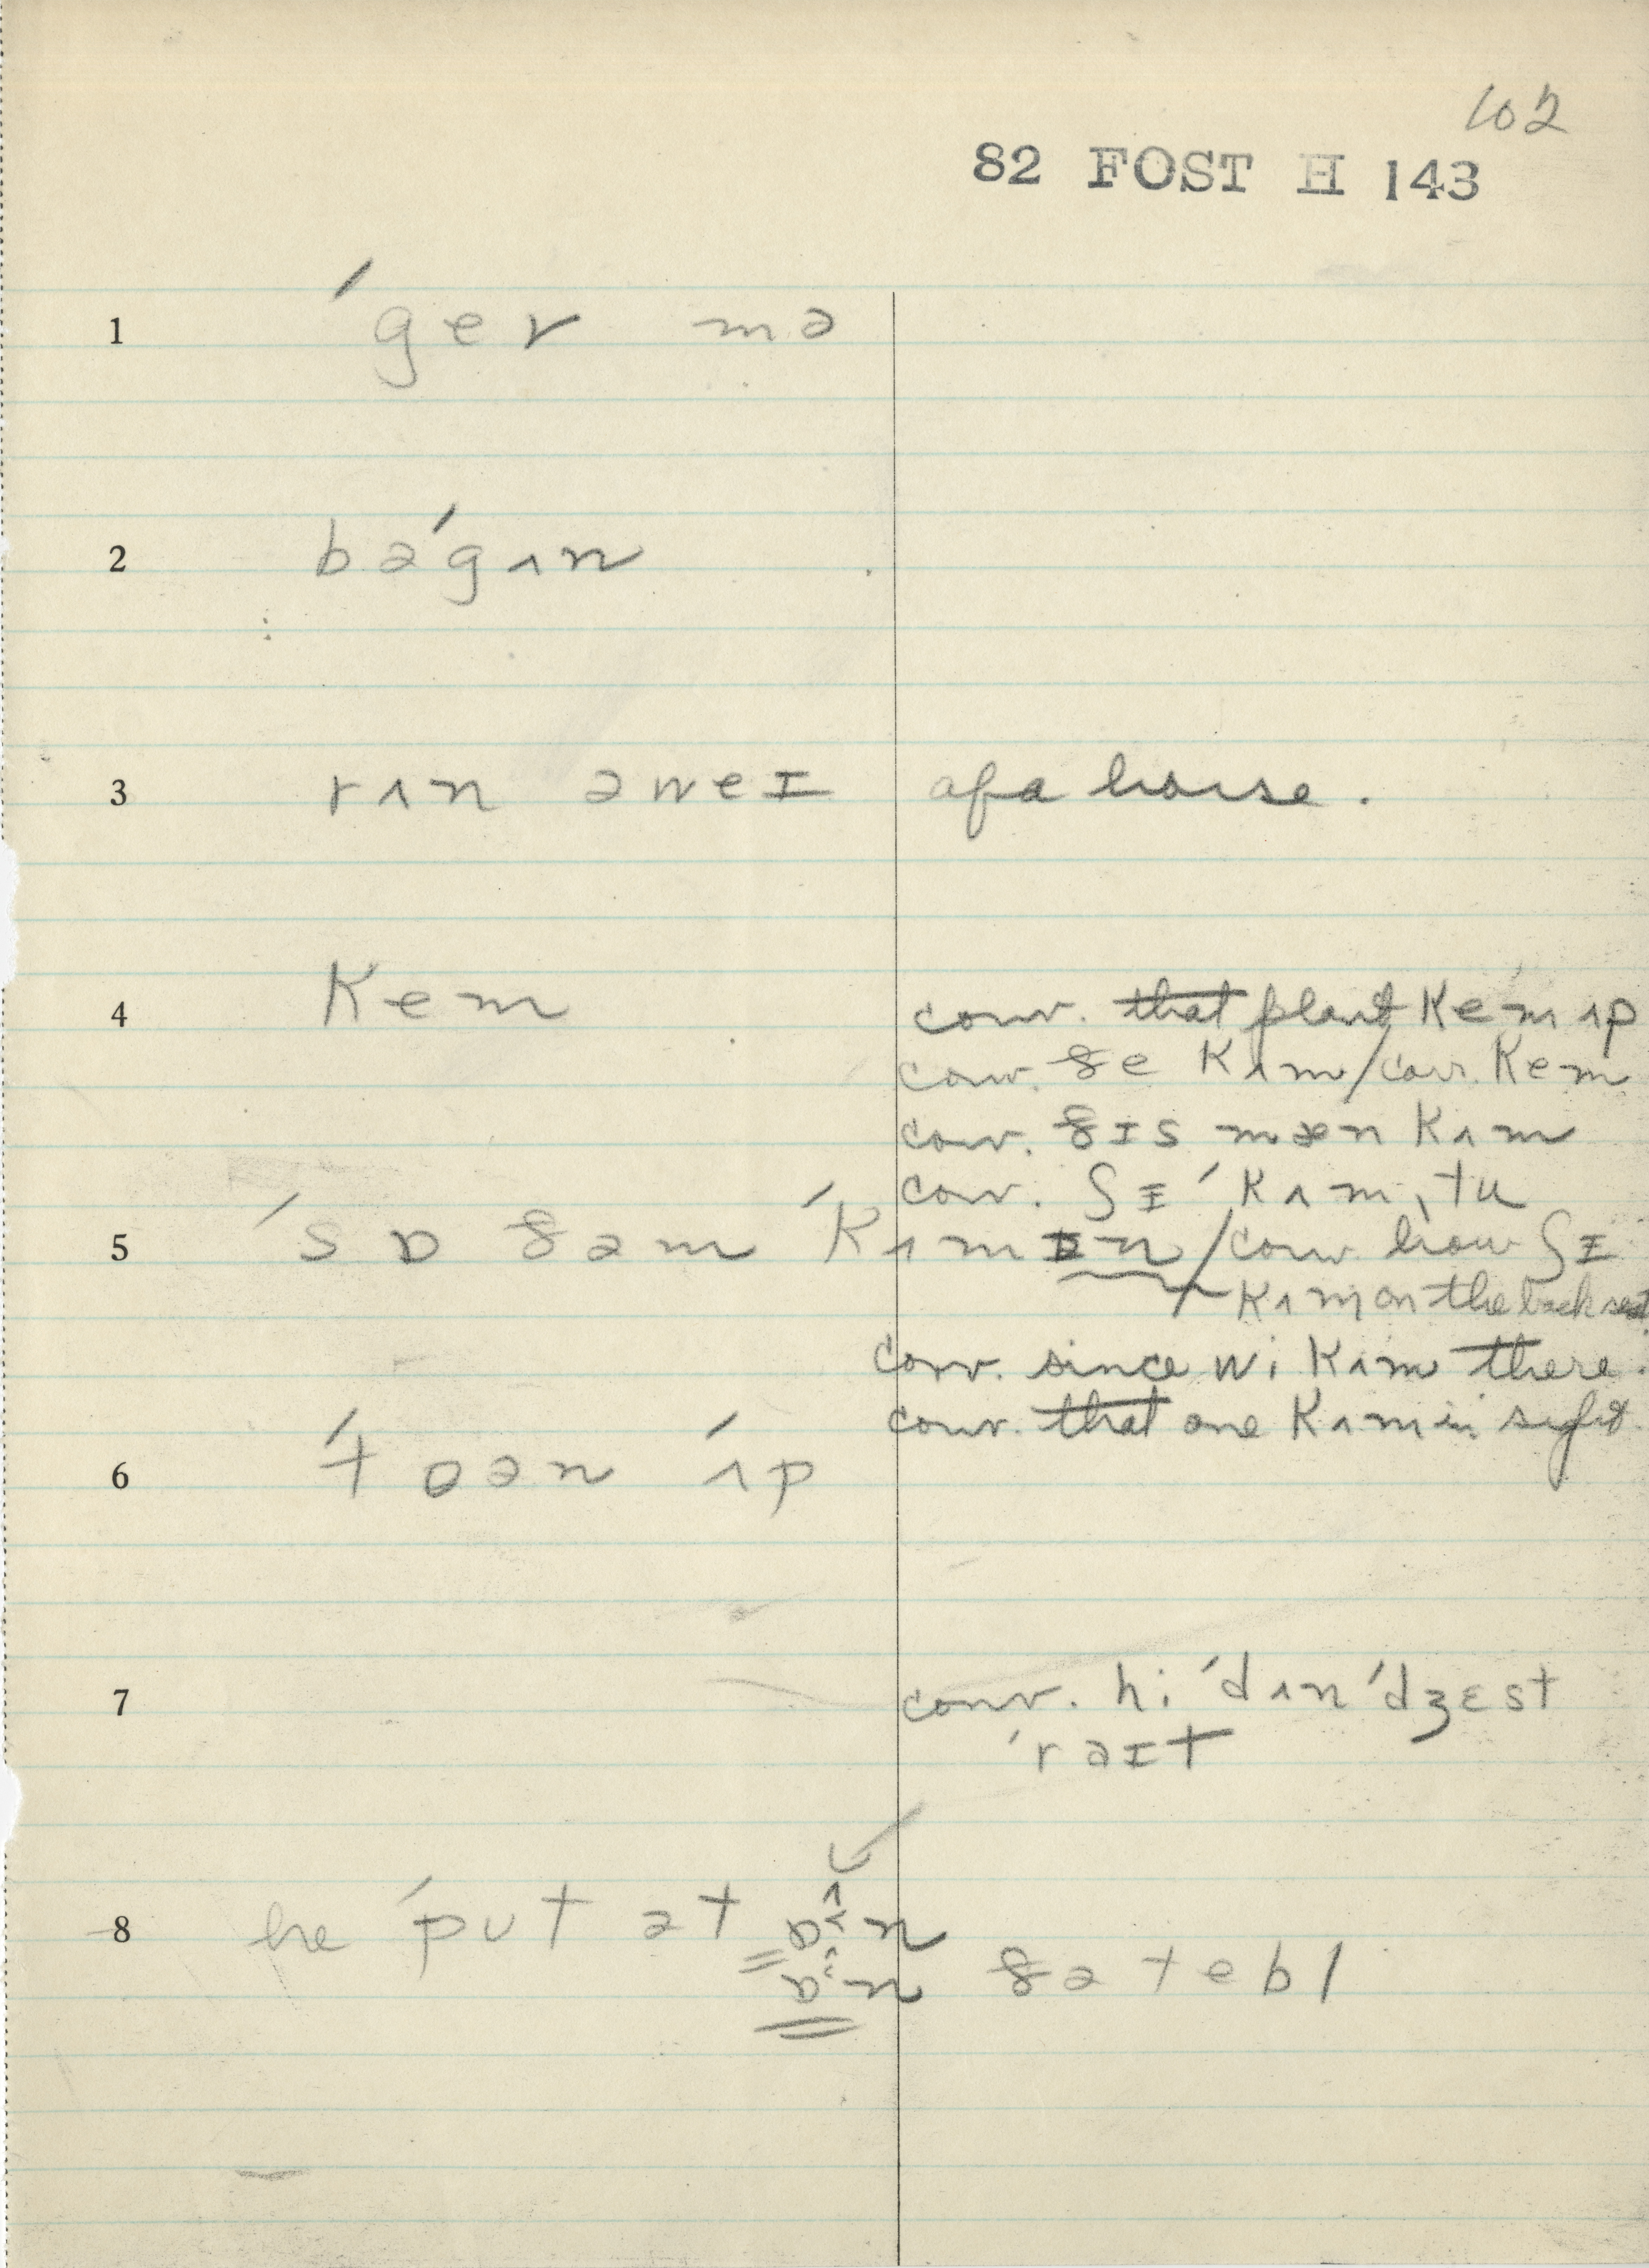 102
82 FOST H 143
1 ˈger mə
2 bəˈgʌn
3 rʌn əweɪ of a horse.
4 Kem conv. that plant Kem ʌp
conv. ðe Kʌm/conv. Kem
conv. ðɪs mæn Kʌm
conv. ʃɪ ˈKʌm, tu
5 ˈsɒ ðəm ˈKʌmɪn/conv. how ʃɪ
Kʌm on the back seat
conv. since wi Kʌm there.
conv. that one Kʌm in sight.
6 ˈtoən ˈʌp
7 conv. hi ˈdʌn ˈdʒɛst
ˈraɪt
8 he ˈput ət ɒn
ɒn ðə tebl